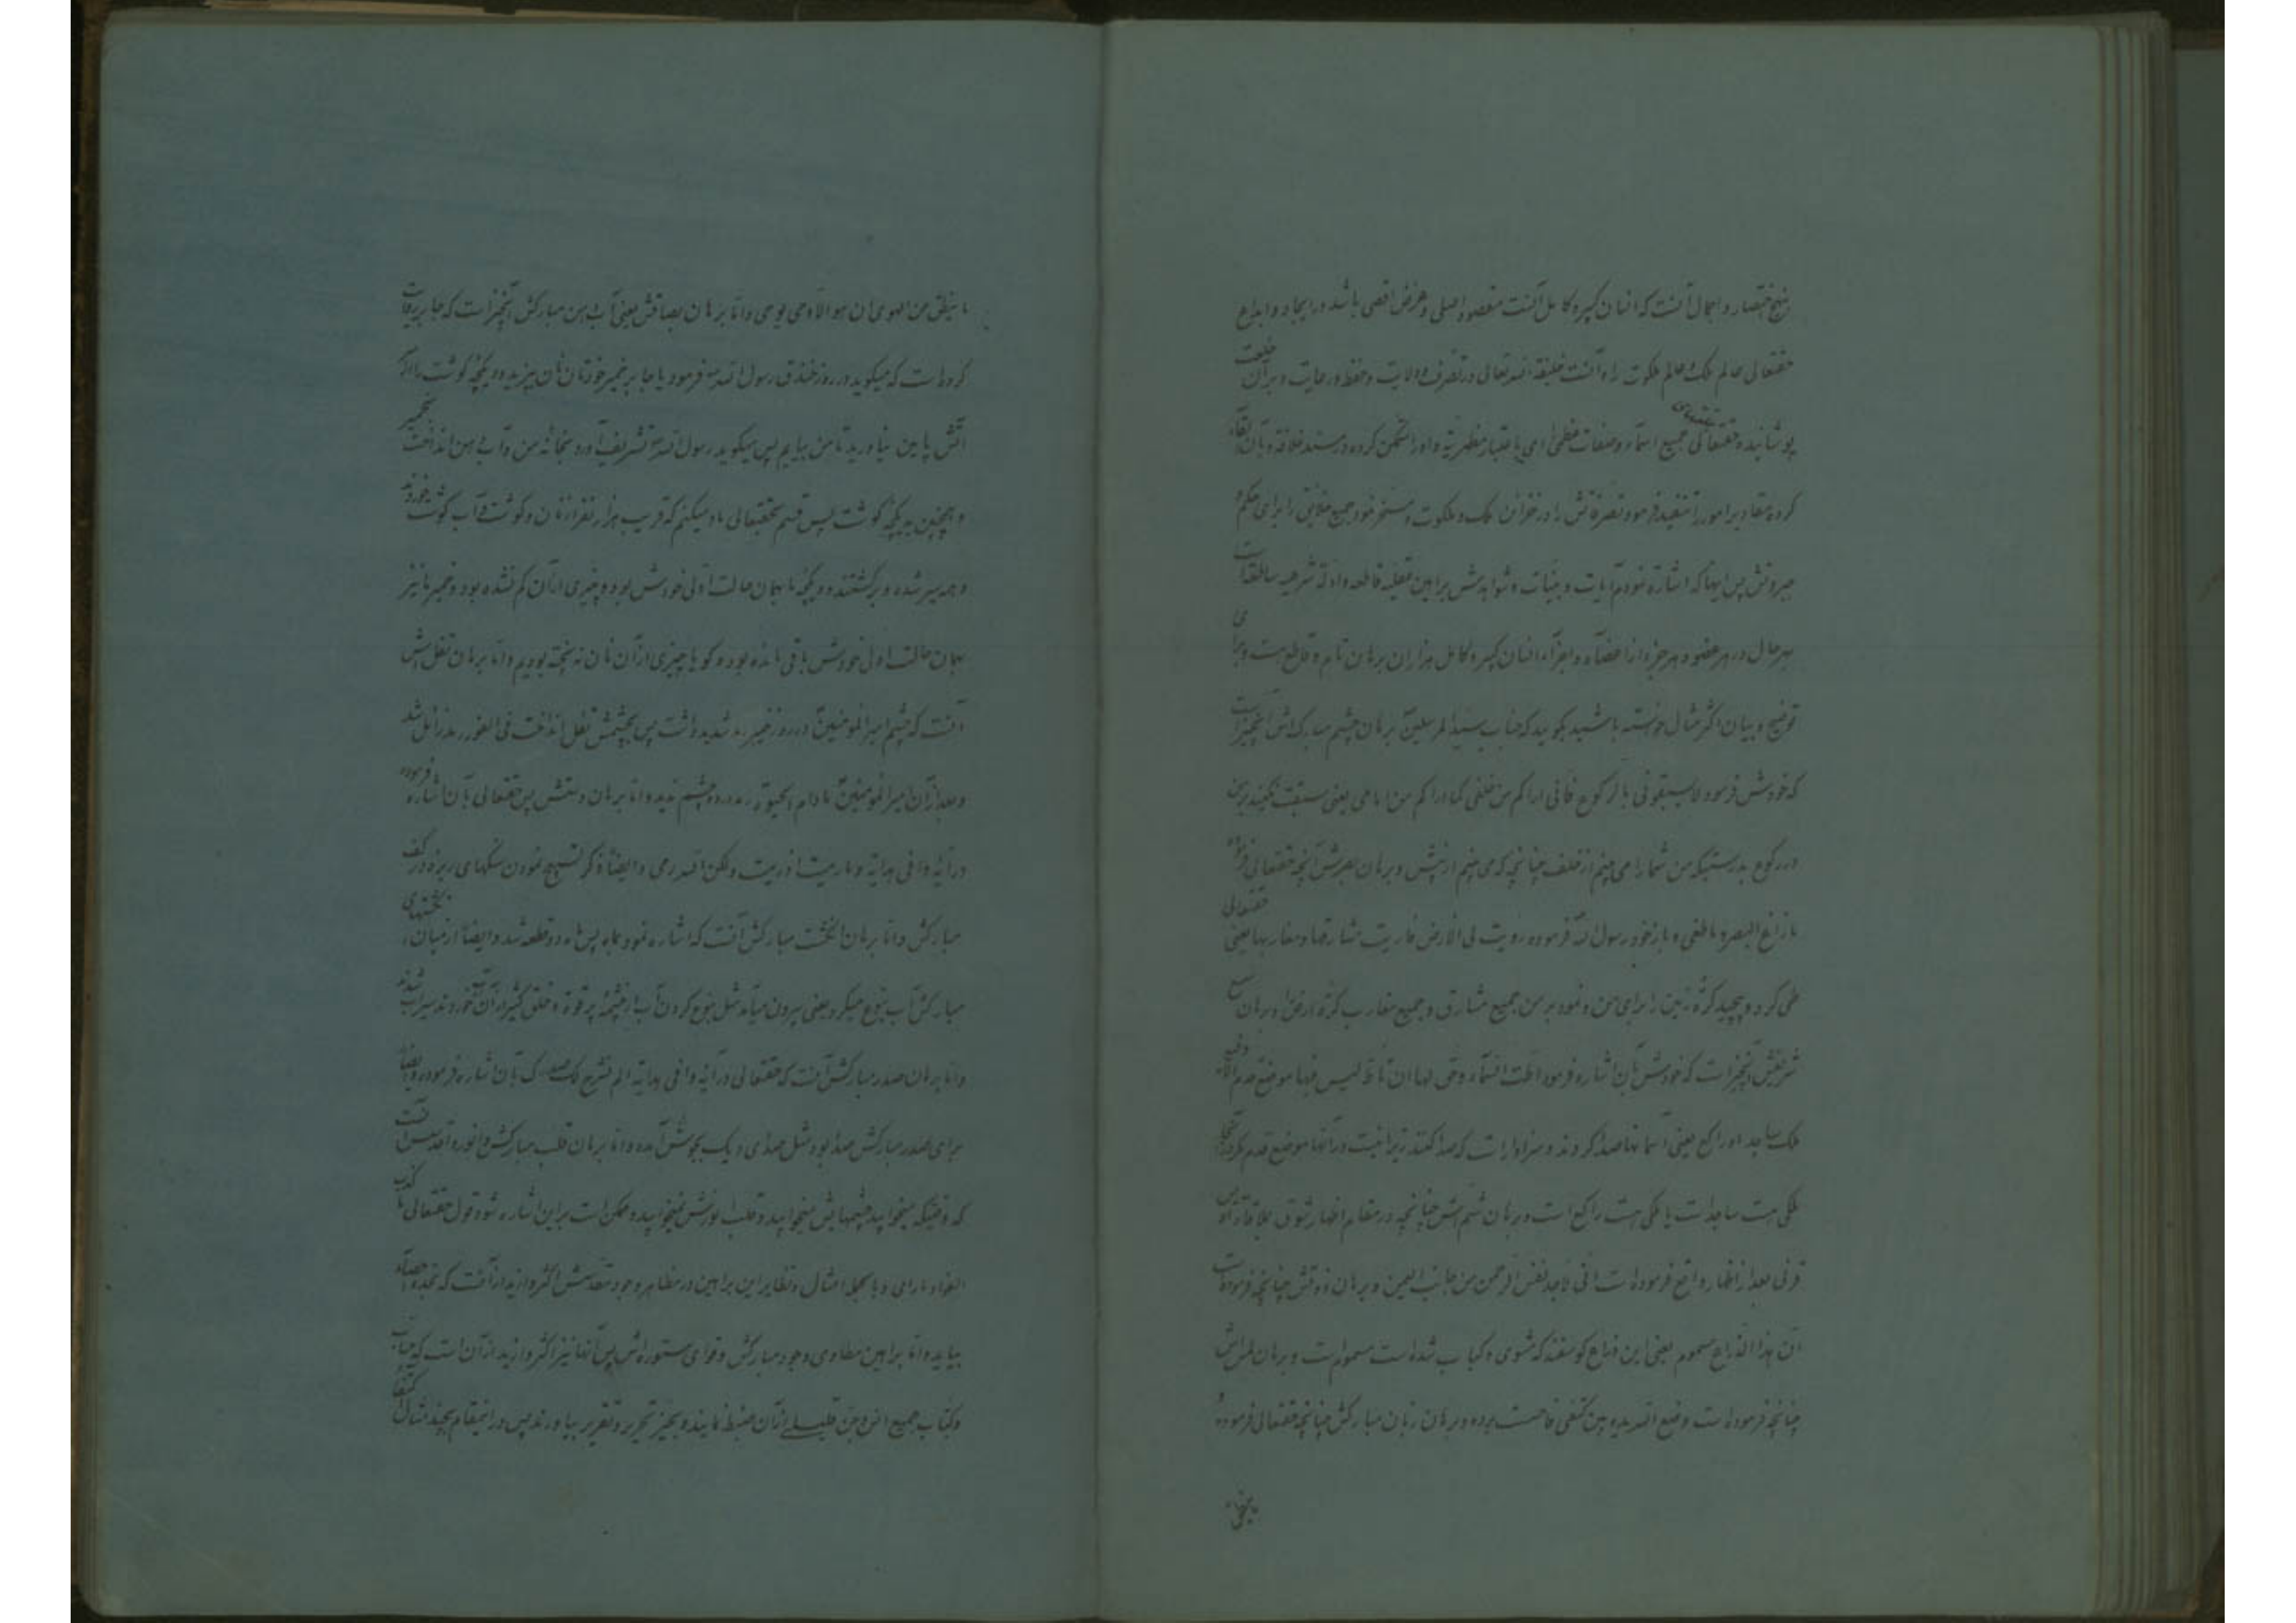 نهج اختصار و اجمال آنست که انسان کبیر و کامل آنست مقصود اصلی و غرض اقصی باشد در ایجاد و ابداع
حقتعالی عالم ملک و عالم ملکوت را و آنست خلیفة الله تعالی در تصرف و ولایت و حفظ و رعایت و بر آن خلعت
پوشانیده حقتعالی جمیع اسماء و صفات عظمی ای باعتبار مظهریة و او را متمکن کرده در مسند خلافة و بآن القاء
کرده مقادیر امور را و تنفیذ فرمود تصرفاتش را در خزائن ملک و ملکوت و مسخر نمود جمیع خلایق را برای حکم و
جبروتش پس اینها که اشاره نمودم آیات و بینات و شواهدش براهین عقلیه قاطعه و ادله شرعیه ساطعه است
بهر حال در هر عضو و هر جزء از اعضاء و اجزاء انسان کبیر و کامل هزاران برهان تام و قاطع هست و برای
توضیح و بیان اگر مثال خواسته باشید بگویید که جناب سید المرسلین برهان چشم مبارکه‌اش آنچیز است
که خودش فرمود لا تسبقونی بالرکوع فانی اراکم من خلفی کما اراکم من امامی یعنی سبقت نکنید بر من
در رکوع بدرستیکه من شما را می بینم از خلف چنانچه که می بینم از پیش و برهان بصرش آنچه حقتعالی فرمود
ما زاغ البصر و ما طغی و باز خود رسول الله فرموده زویت لی الارض فاریت مشارقها و مغاربها یعنی حقتعالی
طی کرد و پیچید کره زمین را برای من و نمود بر من جمیع مشارق و جمیع مغارب کره ارض را و برهان سمع
شریفش آنچیز است که خودش بآن اشاره فرمود اطت السماء و حق لها ان تاط لیس فیها موضع قدم الا و فیه
ملک ساجد او راکع یعنی آسمانها صدا کردند و سزاوار است که صدا کنند زیرا نیست در آنها موضع قدم مگر در آنجا
ملکی هست ساجد است یا ملکی هست راکع است و برهان شمش چنانچه در مقام اظهار شوق بملاقات اویس
قرنی بعد از اظهار واقع فرموده است انی لاجد نفس الرحمن من جانب الیمن و برهان ذوقش چنانچه فرموده است
ان هذا الذراع مسموم یعنی این ذراع گوسفند که مشوی و کباب شده است مسموم است و برهان لمس اش
چنانچه فرموده است وضع الله یده بین کتفی فاحست برده و برهان زبان مبارکش چنانچه حقتعالی فرموده و
ما ینطق
ما ینطق عن الهوی ان هو الا وحی یوحی و اما برهان بصاقش یعنی آب دهن مبارکش آنچیز است که جابر روایت
کرده است که میگوید در روز خندق رسول الله فرمود یا جابر خمیر خودتان نان نپزید و دیگچه گوشت را از سر
آتش پایین نیاورید تا من بیایم پس میگوید رسول الله تشریف آورد بخانه من و آب دهن انداخت بخمیر
و همچنین به دیگچه گوشت پس قسم بحقتعالی یاد میکنم که قریب هزار نفر از نان و گوشت و آب گوشت خوردند
و همه سیر شده و برگشتند و دیگچه ما بهمان حالت اولی خودش بود و چیزی از آن کم نشده بود و خمیر ما نیز
بهمان حالت اولی خودش باقی مانده بود و گویا چیزی از آن نان نه پخته بودیم و اما برهان تفل اش
آنست که چشم امیر المؤمنین در روز خیبر رمد شدید داشت پس بچشمش تفل انداخت فی الفور رمد زائل شد
و بعد از آن امیر المؤمنین مادام الحیوة رمد و درد چشم ندید و اما برهان دستش پس حقتعالی بآن اشاره فرموده
در آیه وافی هدایة و ما رمیت اذ رمیت ولکن الله رمی و ایضا ذکر تسبیح نمودن سنگهای ریزه در کف
مبارکش و اما برهان انگشت مبارکش آنست که اشاره نمود بماه پس ماه دو قطعه شد و ایضا از میان انگشتهای
مبارکش آب نبوع میکرد یعنی بیرون میآمد مثل نبوع کردن آب از چشمه پر قوة و خلق کثیر از آن آب خوردند سیراب شدند
و اما برهان صدر مبارکش آنست که حقتعالی در آیه وافی هدایة الم نشرح لک صدرک بآن اشاره فرموده و ایضا
برای صدر مبارکش صدا بود مثل صدای دیگ بجوش آمده و اما برهان قلب مبارکش و انوره اقدسش آنست
که وقتیکه میخوابید چشمهایش میخوابید و قلب انورش نمیخوابید و ممکن است بر این اشاره شود قول حقتعالی ما کذب
الفؤاد ما رای و بالجمله امثال و نظایر این براهین در مظاهر وجود مقدسش اکثر و ازید از آنست که بحد و احصاء
بیاید و اما براهین مطاوی وجود مبارکش و قوای مستوره اش پس آنها نیز اکثر و ازید از آن است که حساب
و کتاب جمیع انس و جن قلیلی از آن ضبط نمایند و بحیز تحریر و تقریر بیاورند پس در اینمقام بچند مثال اکتفا